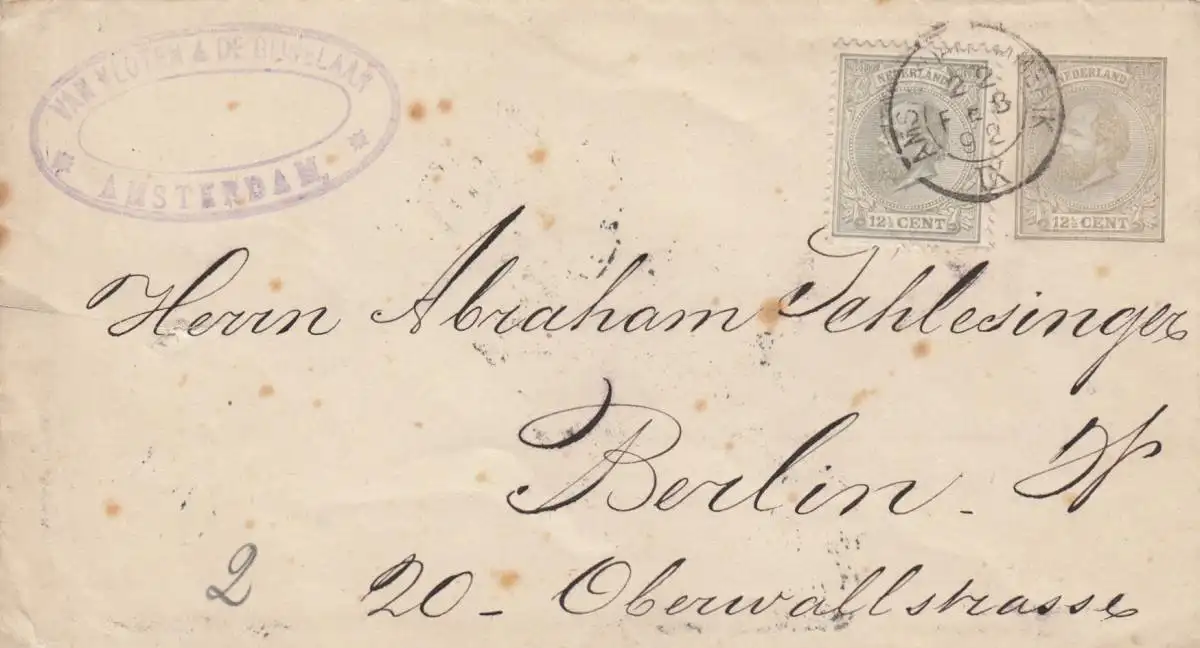 VAN VLOTEN & DE
AMSTERDAM
NEDERLAND
12½ CENT
NEDERLAND
12½ CENT
AMS
FEB
92
XI
Herrn Abraham Schlesinger
Berlin - W
2
20 - Oberwallstrasse